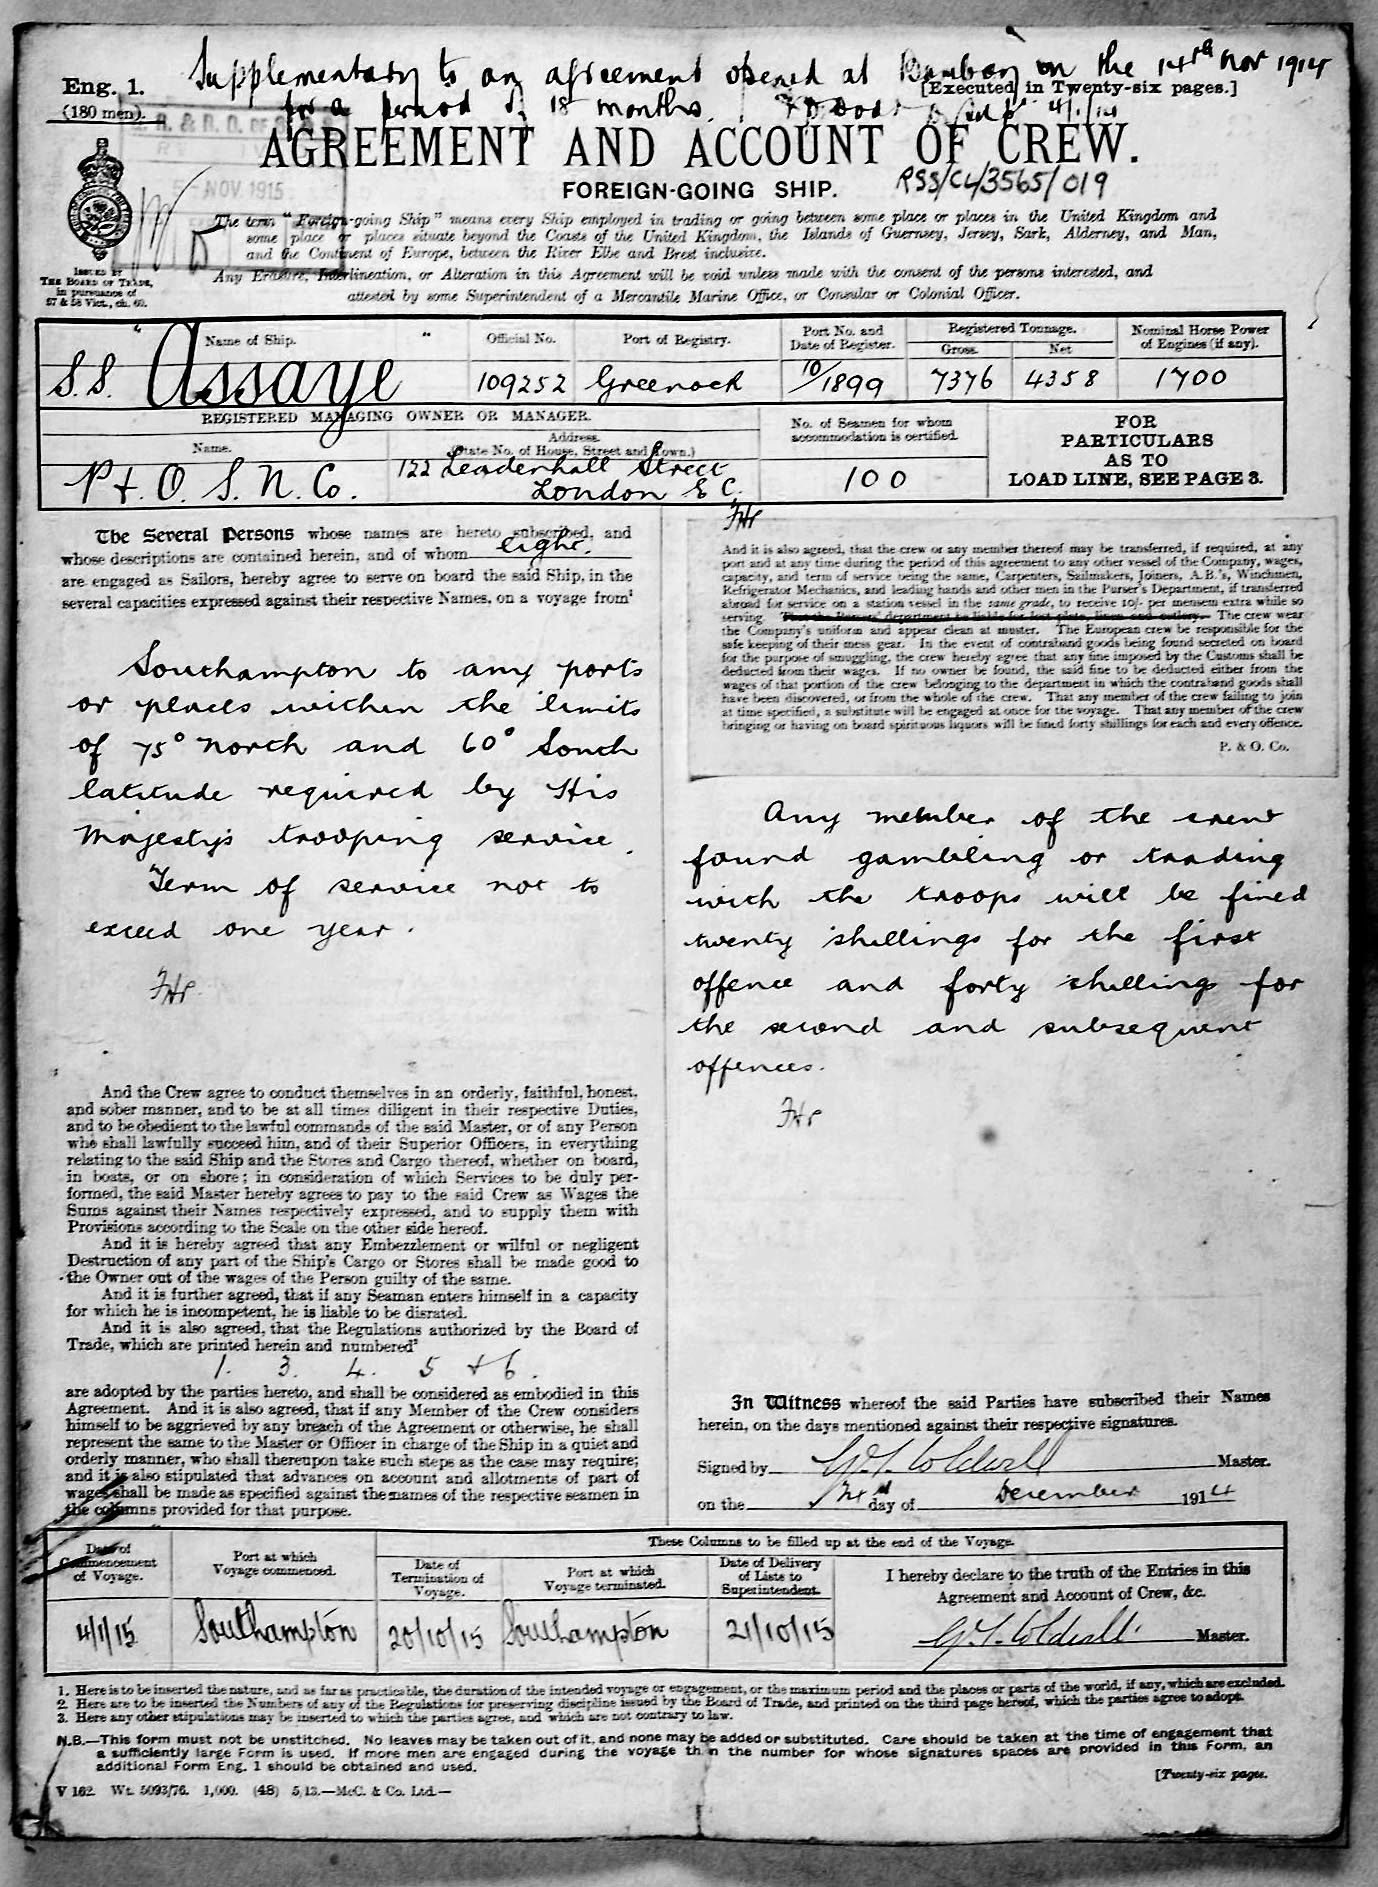 Supplementary to an agreement opened at Bombay on the 14th Nov 1914
Eng. 1.
[Executed in Twenty-six pages.]
(180 men).
for a period of 18 months.
AGREEMENT AND ACCOUNT OF CREW.
FOREIGN-GOING SHIP.
RSS/CL/3565/019
NOV 1915
The term "Foreign-going Ship" means every Ship employed in trading or going between some place or places in the United Kingdom and
some place or places situate beyond the Coasts of the United Kingdom, the Islands of Guernsey, Jersey, Sark, Alderney, and Man,
and the Continent of Europe, between the River Elbe and Brest inclusive.
Any Erasure, Interlineation, or Alteration in this Agreement will be void unless made with the consent of the persons interested, and
attested by some Superintendent of a Mercantile Marine Office, or Consular or Colonial Officer.
ISSUED BY
THE BOARD OF TRADE,
in pursuance of
57 & 58 Vict., ch. 60.
Name of Ship.
Official No.
Port of Registry.
Port No. and
Date of Register.
Registered Tonnage.
Gross.
Net
Nominal Horse Power
of Engines (if any).
S.S. "Assaye"
109252
Greenock
10/1899
7376
4358
1700
REGISTERED MANAGING OWNER OR MANAGER.
Name.
Address.
(State No. of House, Street and Town.)
No. of Seamen for whom
accommodation is certified.
FOR
PARTICULARS
AS TO
LOAD LINE, SEE PAGE 3.
P. & O. S. N. Co.
122 Leadenhall Street
London E C.
100
The Several Persons whose names are hereto subscribed, and
whose descriptions are contained herein, and of whom eight.
are engaged as Sailors, hereby agree to serve on board the said Ship, in the
several capacities expressed against their respective Names, on a voyage from¹
Southampton to any ports
or places within the limits
of 75° North and 60° South
latitude required by His
Majesty's trooping service.
Term of service not to
exceed one year.
And the Crew agree to conduct themselves in an orderly, faithful, honest,
and sober manner, and to be at all times diligent in their respective Duties,
and to be obedient to the lawful commands of the said Master, or of any Person
who shall lawfully succeed him, and of their Superior Officers, in everything
relating to the said Ship and the Stores and Cargo thereof, whether on board,
in boats, or on shore; in consideration of which Services to be duly per-
formed, the said Master hereby agrees to pay to the said Crew as Wages the
Sums against their Names respectively expressed, and to supply them with
Provisions according to the Scale on the other side hereof.
And it is hereby agreed that any Embezzlement or wilful or negligent
Destruction of any part of the Ship's Cargo or Stores shall be made good to
the Owner out of the wages of the Person guilty of the same.
And it is further agreed, that if any Seaman enters himself in a capacity
for which he is incompetent, he is liable to be disrated.
And it is also agreed, that the Regulations authorized by the Board of
Trade, which are printed herein and numbered²
1. 3. 4. 5 & 6.
are adopted by the parties hereto, and shall be considered as embodied in this
Agreement. And it is also agreed, that if any Member of the Crew considers
himself to be aggrieved by any breach of the Agreement or otherwise, he shall
represent the same to the Master or Officer in charge of the Ship in a quiet and
orderly manner, who shall thereupon take such steps as the case may require;
and it is also stipulated that advances on account and allotments of part of
wages shall be made as specified against the names of the respective seamen in
the columns provided for that purpose.
And it is also agreed, that the crew or any member thereof may be transferred, if required, at any
port and at any time during the period of this agreement to any other vessel of the Company, wages,
capacity, and term of service being the same, Carpenters, Sailmakers, Joiners, A.B.'s, Winchmen,
Refrigerator Mechanics, and leading hands and other men in the Purser's Department, if transferred
abroad for service on a station vessel in the same grade, to receive 10/- per mensem extra while so
serving. That the Pursers' department be liable for lost plate, linen and cutlery. The crew wear
the Company's uniform and appear clean at muster. The European crew be responsible for the
safe keeping of their mess gear. In the event of contraband goods being found secreted on board
for the purpose of smuggling, the crew hereby agree that any fine imposed by the Customs shall be
deducted from their wages. If no owner be found, the said fine to be deducted either from the
wages of that portion of the crew belonging to the department in which the contraband goods shall
have been discovered, or from the whole of the crew. That any member of the crew failing to join
at time specified, a substitute will be engaged at once for the voyage. That any member of the crew
bringing or having on board spirituous liquors will be fined forty shillings for each and every offence.
P. & O. Co.
Any member of the crew
found gambling or trading
with the troops will be fined
twenty shillings for the first
offence and forty shillings for
the second and subsequent
offences.
In Witness whereof the said Parties have subscribed their Names
herein, on the days mentioned against their respective signatures.
Signed by Master.
on the day of December 1914
Date of
Commencement
of Voyage.
Port at which
Voyage commenced.
These Columns to be filled up at the end of the Voyage.
Date of
Termination of
Voyage.
Port at which
Voyage terminated.
Date of Delivery
of Lists to
Superintendent.
I hereby declare to the truth of the Entries in this
Agreement and Account of Crew, &c.
4/1/15
Southampton
20/10/15
Southampton
21/10/15
Master.
1. Here is to be inserted the nature, and as far as practicable, the duration of the intended voyage or engagement, or the maximum period and the places or parts of the world, if any, which are excluded.
2. Here are to be inserted the Numbers of any of the Regulations for preserving discipline issued by the Board of Trade, and printed on the third page hereof, which the parties agree to adopt.
3. Here any other stipulations may be inserted to which the parties agree, and which are not contrary to law.
N.B.—This form must not be unstitched. No leaves may be taken out of it, and none may be added or substituted. Care should be taken at the time of engagement that
a sufficiently large Form is used. If more men are engaged during the voyage than the number for whose signatures spaces are provided in this Form, an
additional Form Eng. 1 should be obtained and used.
[Twenty-six pages.
V 162. Wt. 5093/76. 1,000. (48) 5,13.—McC. & Co. Ltd.—